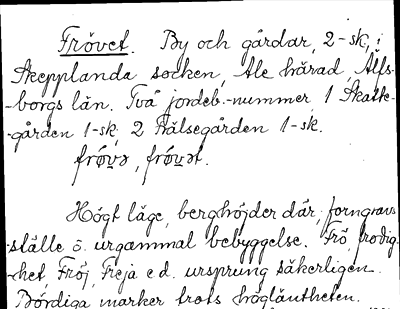 Frövet. By och gårdar, 2-sk, i
Skepplanda socken, Ale härad, Älfs-
-borgs län. Två jordeb.-nummer, 1 Skatte-
-gården 1-sk, 2 Frälsegården 1-sk.
frǿvə, frǿvət.
Högt läge, berghöjder där, forngravs-
-ställe o. urgammal bebyggelse. Frö, frodig-
-het, Fröj, Freja e.d. ursprung säkerligen.
Bördiga marker trots högläntheten.